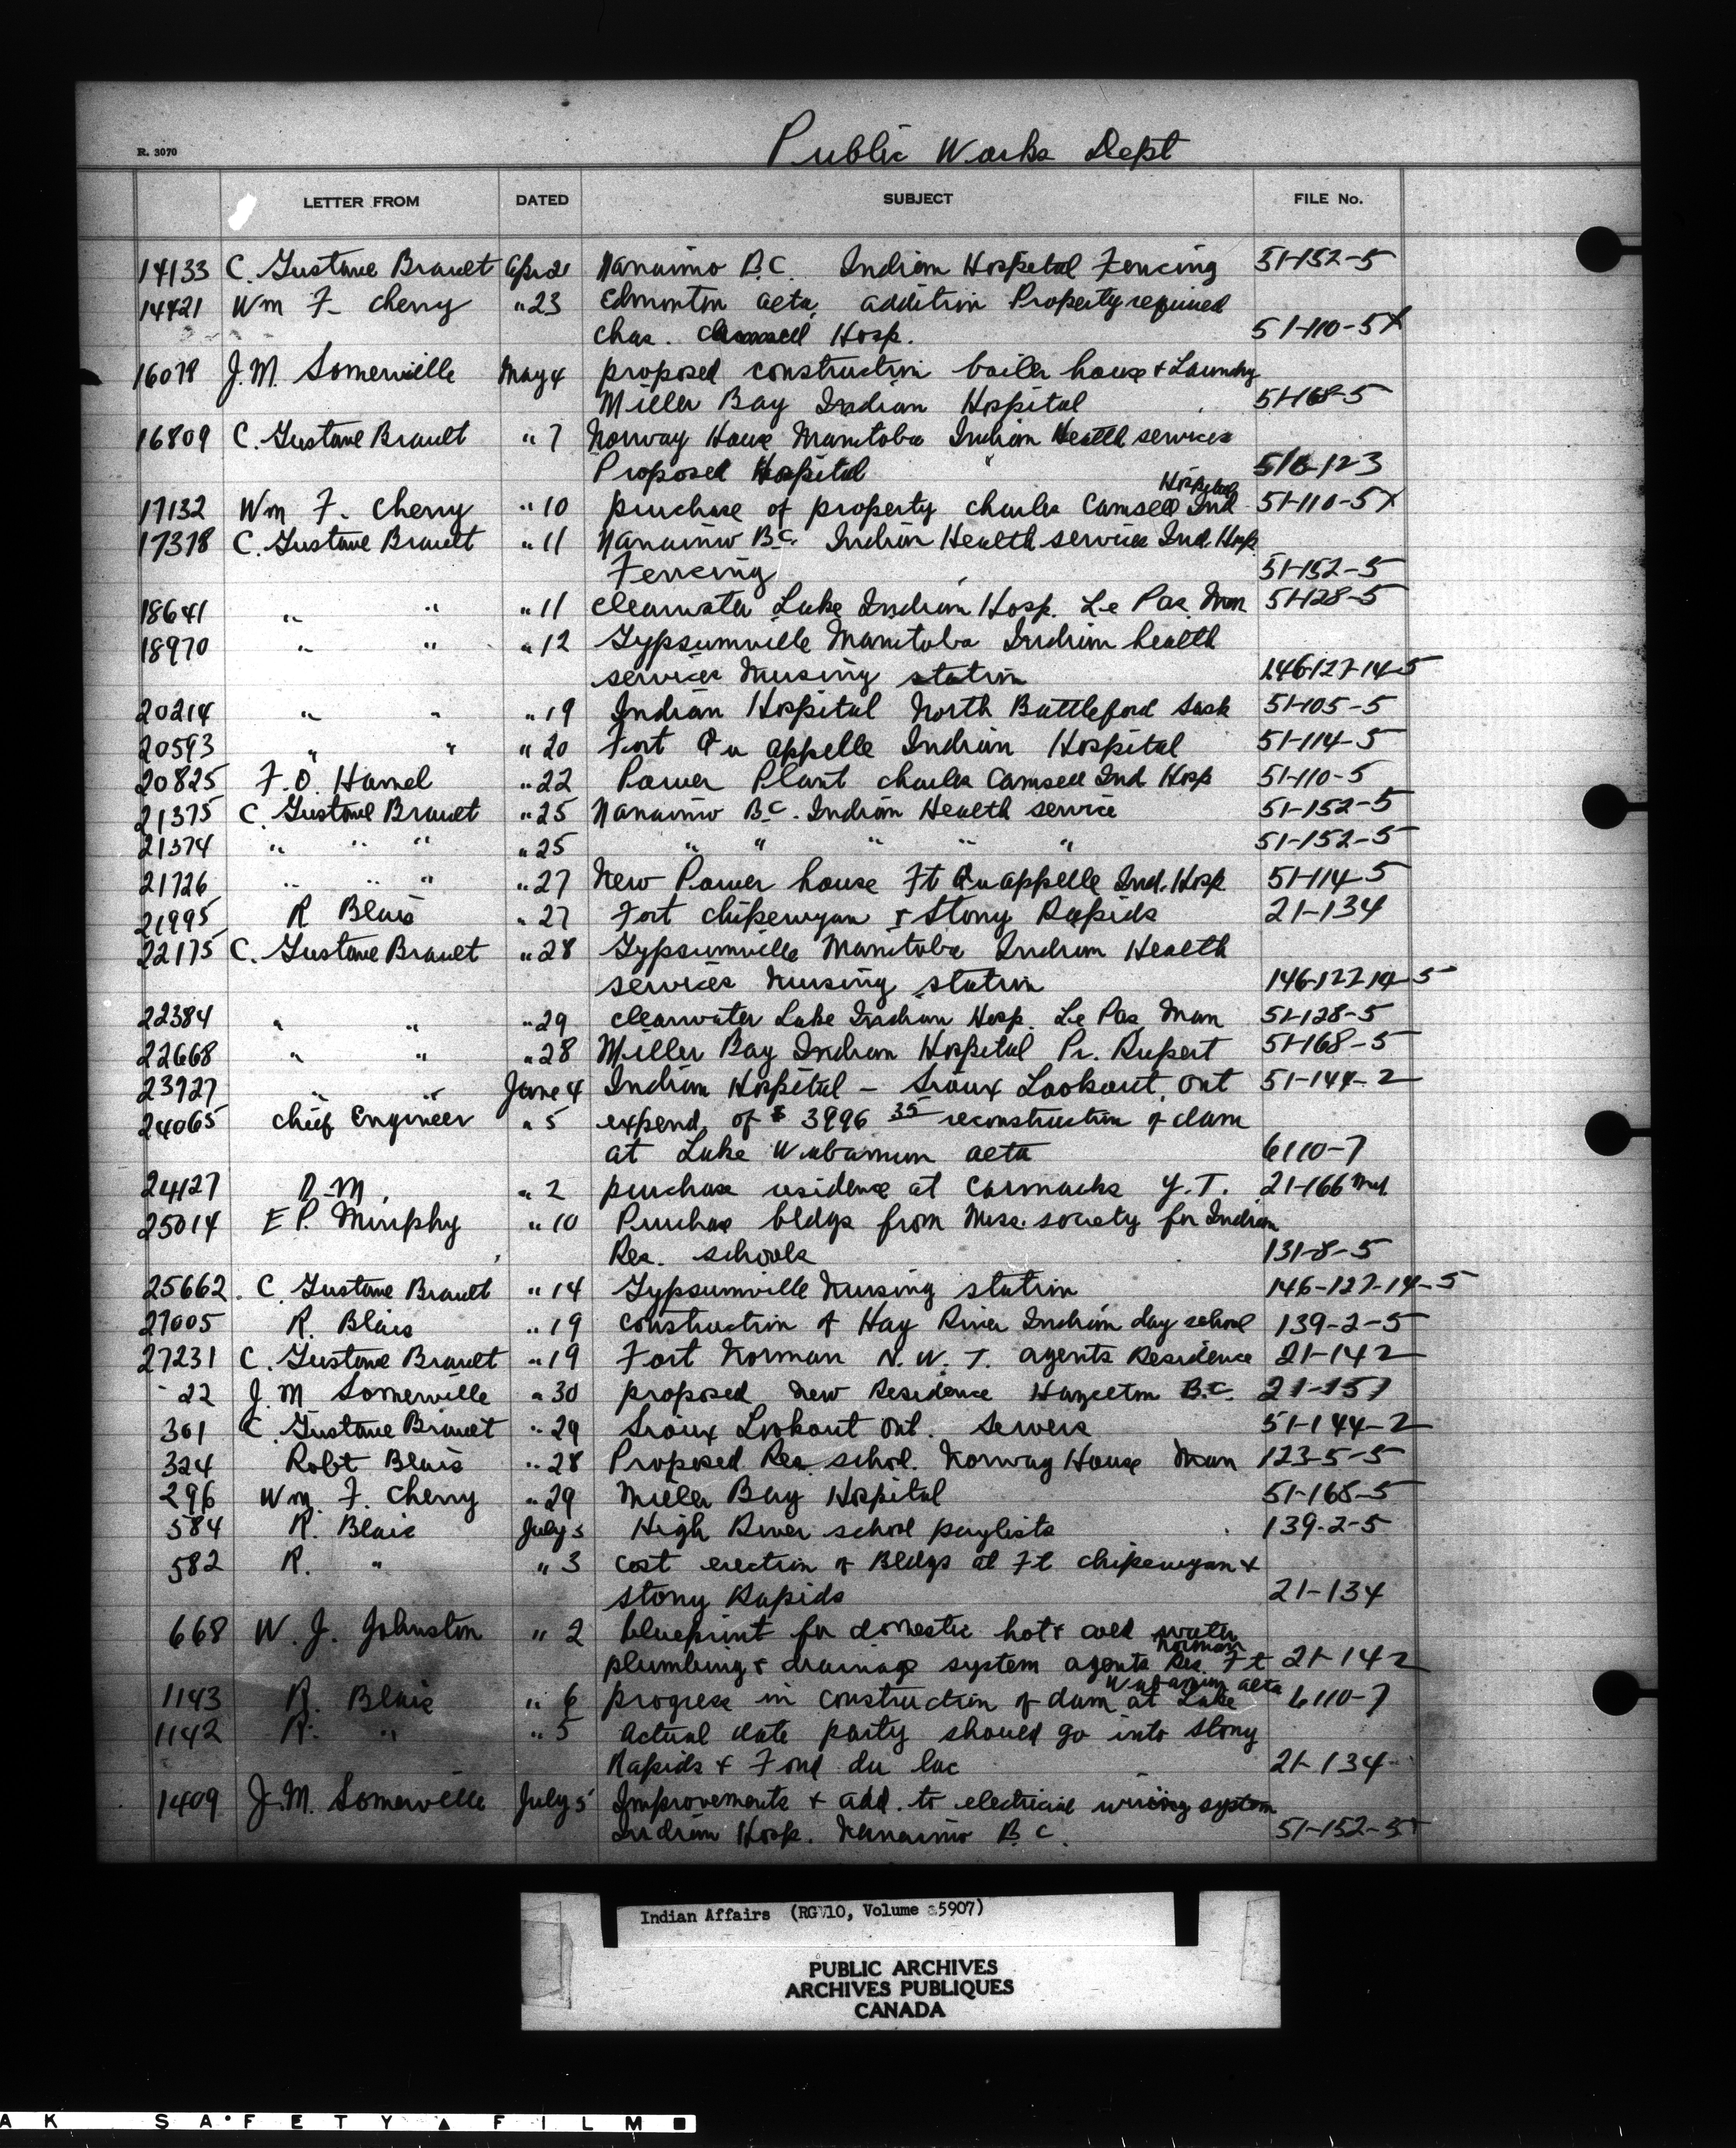 Public Works Dept
R. 3070
LETTER FROM DATED SUBJECT FILE No.
14133 C. Gustave Brault Apr 21 Nanaimo B.C. Indian Hospital Fencing 51-152-5
14421 Wm F. Cherry " 23 Edmonton Alta. addition Property required
Chas. Camsell Hosp. 51-110-5X
16078 J.M. Somerville May 4 proposed construction boiler house & Laundry
Miller Bay Indian Hospital 51-168-5
16809 C. Gustave Brault " 7 Norway House Manitoba Indian Health services
Proposed Hospital 123
17132 Wm F. Cherry " 10 purchase of property Charles Camsell Ind Hospital 51-110-5X
17378 C. Gustave Brault " 11 Nanaimo B.C. Indian Health services Ind. Hosp.
Fencing 51-152-5
18641 " " " 11 Clearwater Lake Indian Hosp. Le Pas Man 51-128-5
18970 " " " 12 Gypsumville Manitoba Indian health
services Nursing station 146-127-14-5
20214 " " " 19 Indian Hospital North Battleford Sask 51-105-5
20593 " " " 20 Fort Qu appelle Indian Hospital 51-114-5
20825 F.O. Hamel " 22 Power Plant Charles Camsell Ind Hosp 51-110-5
21375 C. Gustave Brault " 25 Nanaimo B.C. Indian Health service 51-152-5
21374 " " " " 25 " " " " " 51-152-5
21726 " " " " 27 New Power house Ft Qu appelle Ind. Hosp. 51-114-5
21995 R Blais " 27 Fort Chipewyan & Stony Rapids 21-134
22175 C. Gustave Brault " 28 Gypsumville Manitoba Indian Health
services Nursing station 146-127-14-5
22384 " " " 29 Clearwater Lake Indian Hosp. Le Pas Man 51-128-5
22668 " " " 28 Miller Bay Indian Hospital Pr. Rupert 51-168-5
23927 " " June 4 Indian Hospital - Sioux Lookout, Ont 51-144-2
24065 Chief Engineer " 5 expend. of $ 3996 35 reconstruction of dam
at Lake Wabamun Alta 6110-7
24127 D.M. " 2 purchase residence at Carmacks Y.T. 21-166
25014 E P. Murphy " 10 Purchase bldgs from Miss. society for Indian
Res. schools 131-8-5
25662 C. Gustave Brault " 14 Gypsumville Nursing station 146-127-14-5
27005 R. Blais " 19 construction of Hay River Indian day school 139-2-5
27231 C. Gustave Brault " 19 Fort Norman N.W.T. agents Residence 21-142
22 J.M Somerville " 30 proposed New Residence Hazelton B.C. 21-157
301 C. Gustave Brault " 29 Sioux Lookout Ont. Sewers 51-144-2
324 Robt Blais " 28 Proposed Res. school. Norway House Man 123-5-5
296 Wm. F. Cherry " 29 Miller Bay Hospital 51-168-5
584 R. Blais July 3 High River school paylists 139-2-5
582 R. " " 3 cost erection of Bldgs at Ft Chipewyan &
Stony Rapids 21-134
668 W. J. Johnston " 2 blueprint for domestic hot & cold water
plumbing & drainage system agents Res. Ft Norman 21-142
1143 R. Blais " 6 progress in construction of dam at Lake Wabamun Alta 6110-7
1142 R. " " 5 Actual date party should go into Stony
Rapids & Fond du lac 21-134
1409 J.M. Somerville July 5 Improvements & add. to electrical wiring system
Indian Hosp. Nanaimo B.C. 51-152-5
Indian Affairs (RG 10, Volume 5907)
PUBLIC ARCHIVES
ARCHIVES PUBLIQUES
CANADA
AK SAFETY FILM